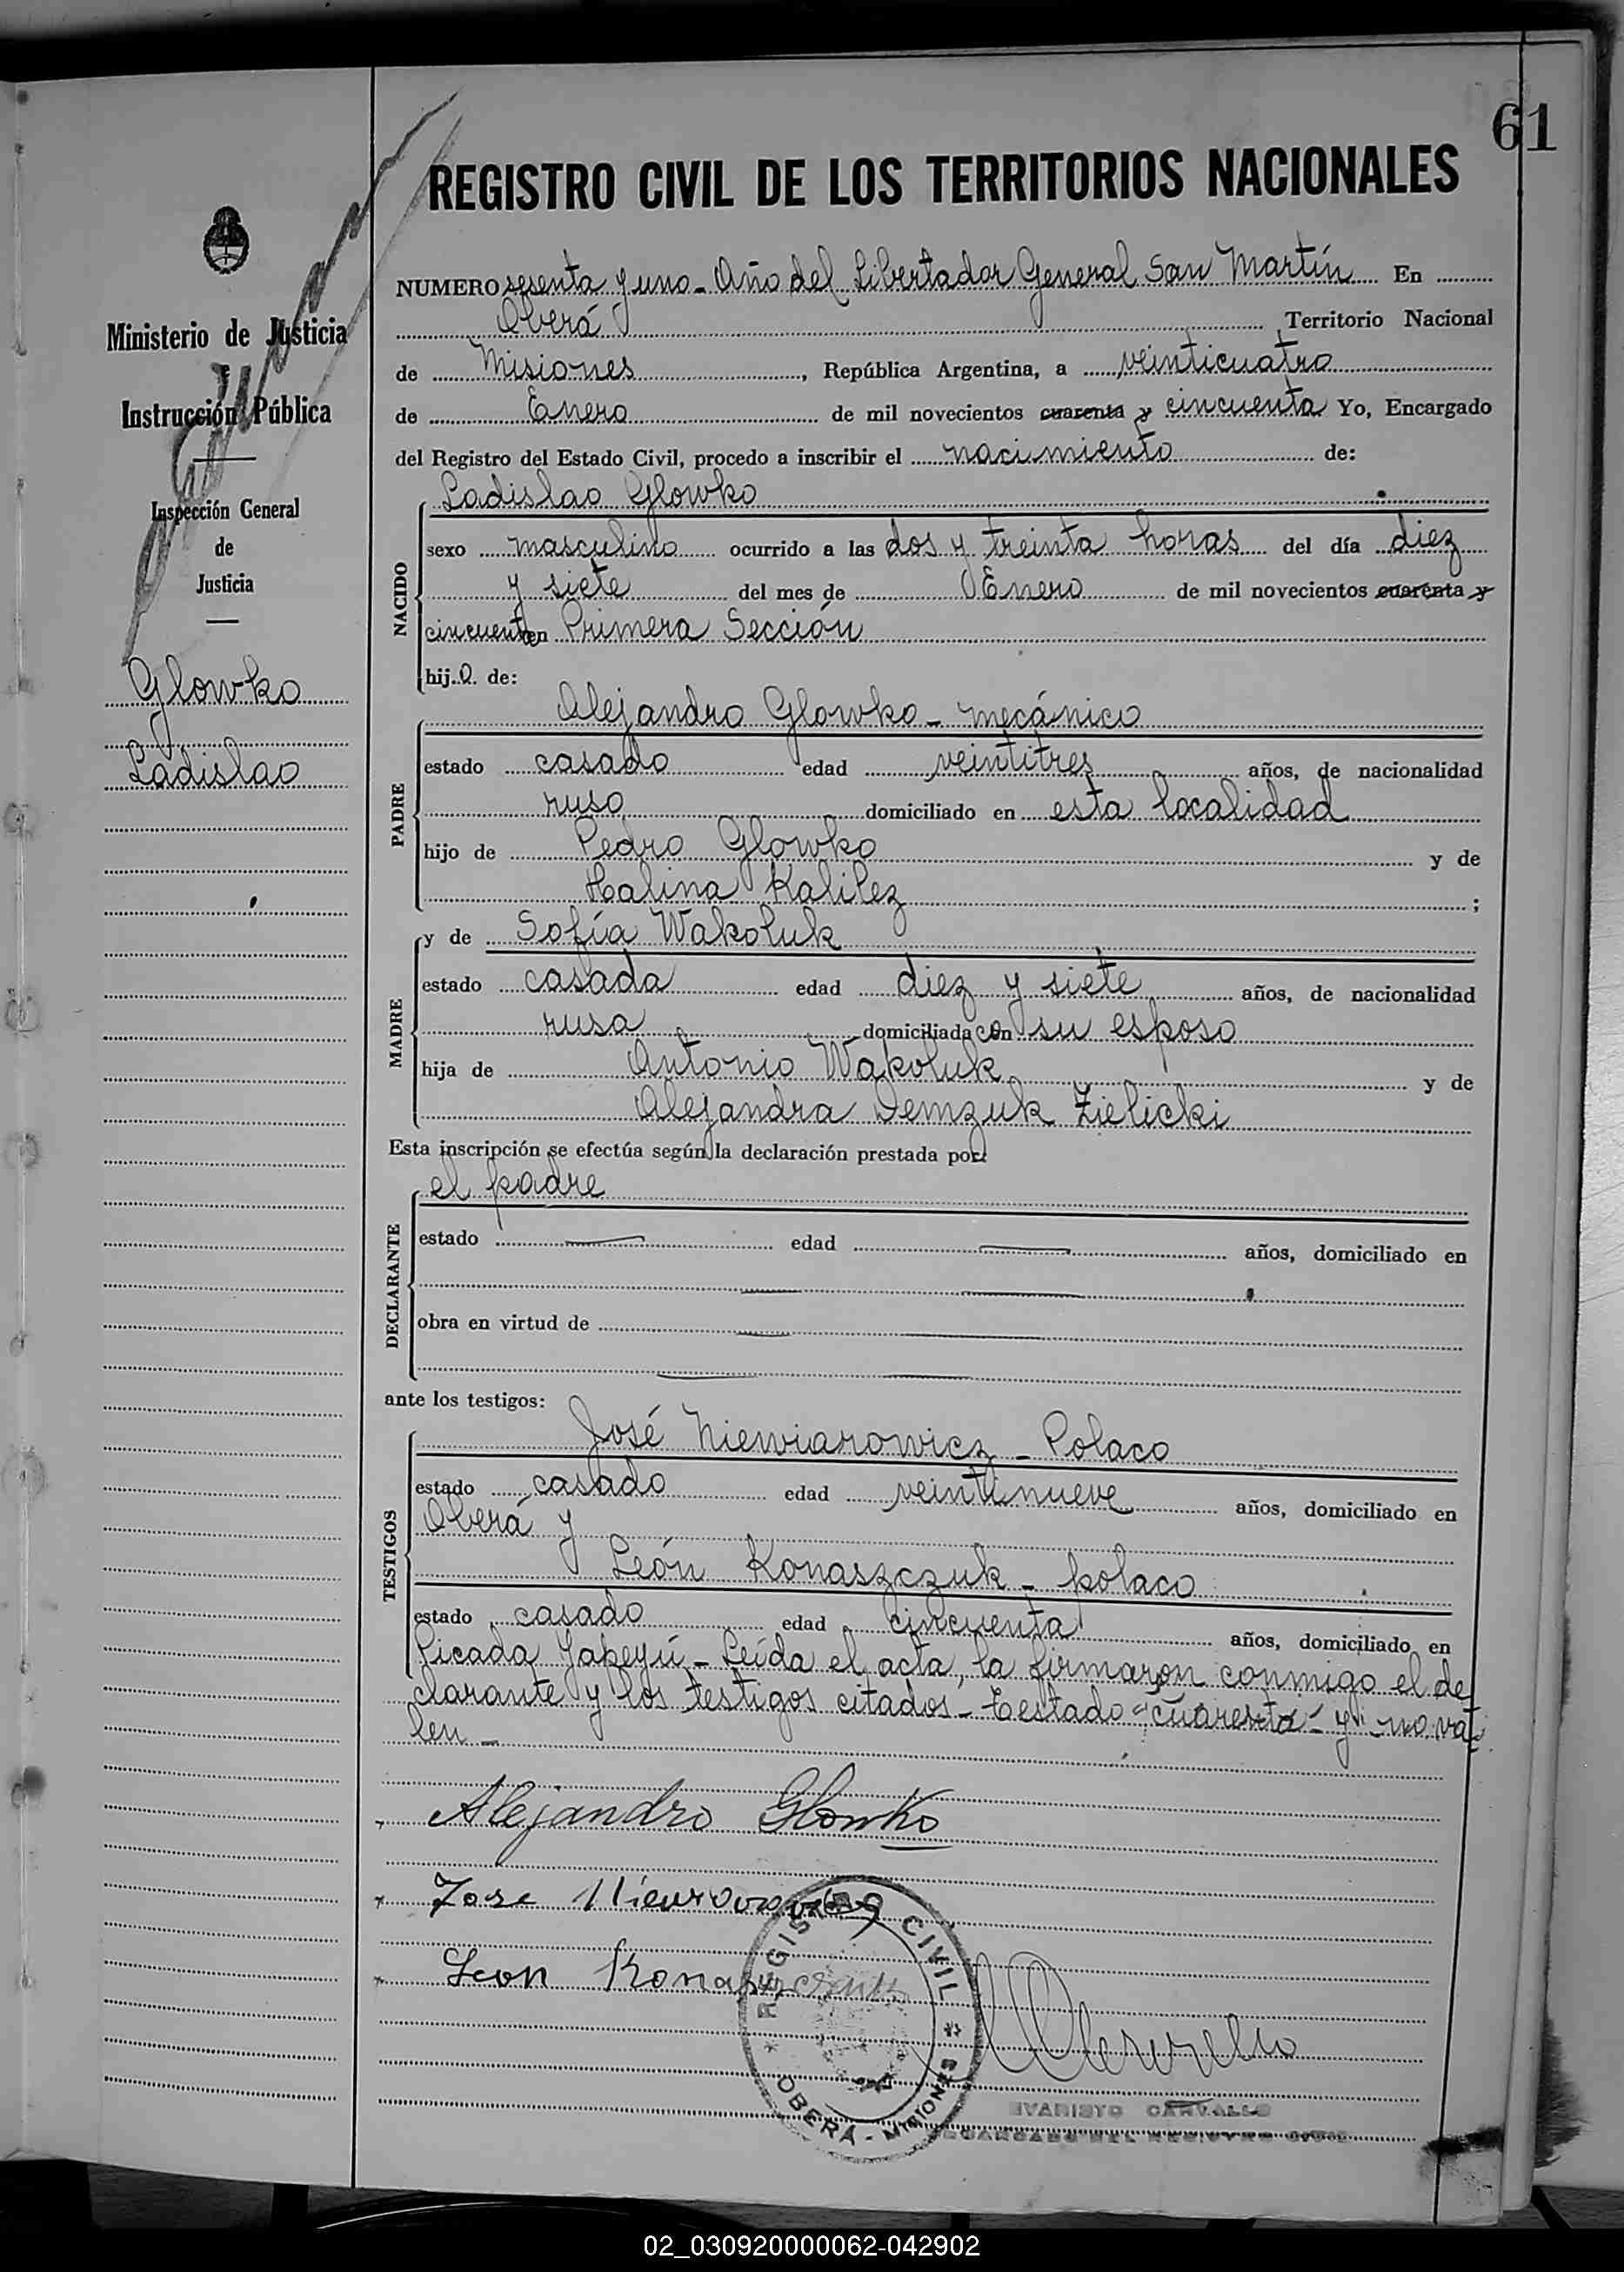 61
REGISTRO CIVIL DE LOS TERRITORIOS NACIONALES
NUMERO sesenta y uno - Año del Libertador General San Martín En
Oberá Territorio Nacional
de Misiones, República Argentina, a veinticuatro
de Enero de mil novecientos cuarenta y cincuenta Yo, Encargado
del Registro del Estado Civil, procedo a inscribir el nacimiento de:
Ministerio de Justicia
e
Instrucción Pública
Inspección General
de
Justicia
Glowko
Ladislao
NACIDO
Ladislao Glowko
sexo masculino ocurrido a las dos y treinta horas del día diez
y siete del mes de Enero de mil novecientos cuarenta y
cincuenta en Primera Sección
hijo de:
PADRE
Alejandro Glowko - mecánico
estado casado edad veintitres años, de nacionalidad
ruso domiciliado en esta localidad
hijo de Pedro Glowko y de
Halina Kalilez ;
MADRE
y de Sofía Wakoluk
estado casada edad diez y siete años, de nacionalidad
rusa domiciliada con su esposo
hija de Antonio Wakoluk y de
Alejandra Demzuk Zielicki
Esta inscripción se efectúa según la declaración prestada por:
DECLARANTE
el padre
estado edad años, domiciliado en
obra en virtud de
ante los testigos:
TESTIGOS
José Niewiarowicz - Polaco
estado casado edad veintinueve años, domiciliado en
Oberá y
León Konaszczuk - polaco
estado casado edad cincuenta años, domiciliado en
Picada Yapeyú - Leída el acta, la firmaron conmigo el de
clarante y los testigos citados - Testado "cuarenta" y no va
len -
Alejandro Glowko
Jose
Leon Konaszczuk
REGISTRO CIVIL
OBERÁ - MISIONES
EVARISTO CARVALLO
ENCARGADO DEL REGISTRO CIVIL
02_030920000062-042902